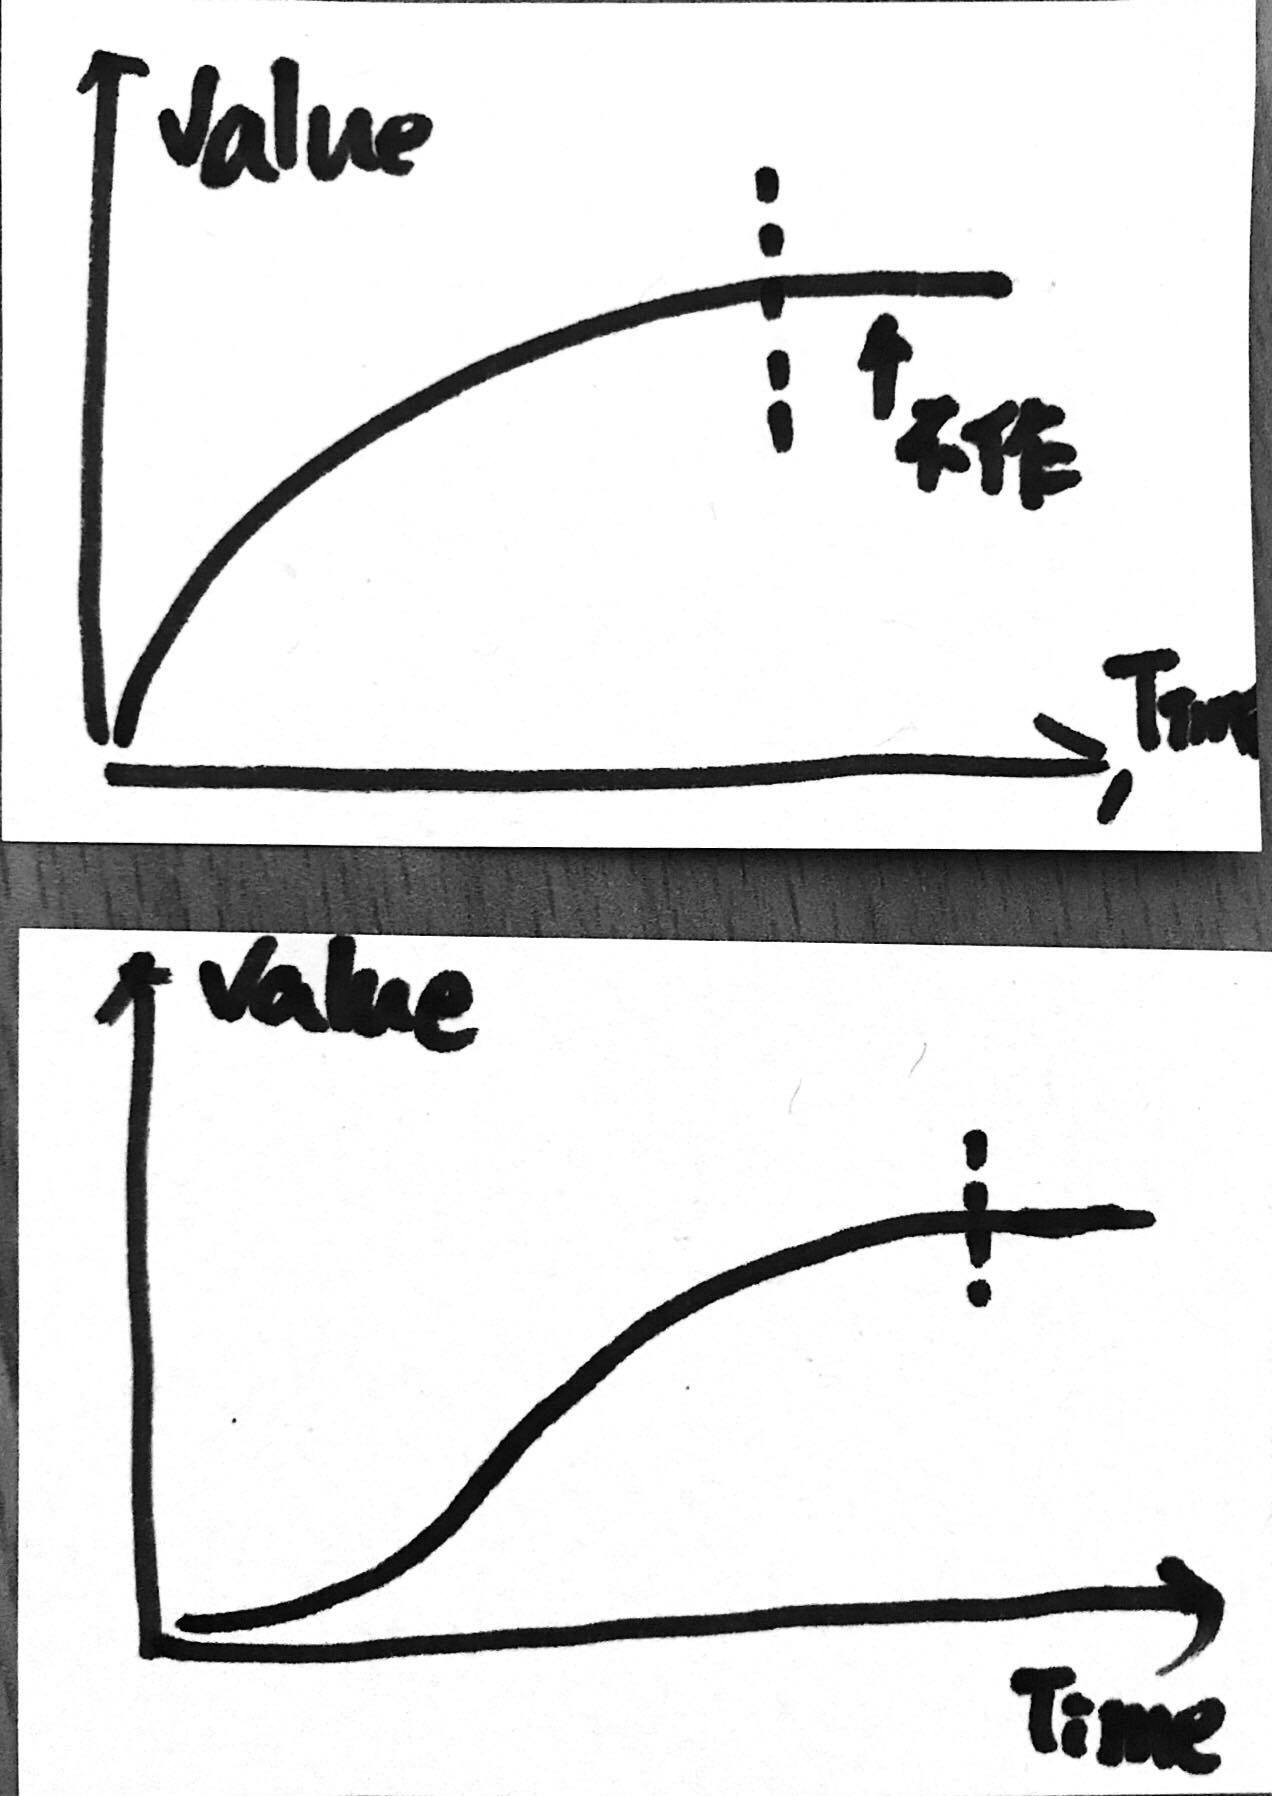 Value
不作
Time
Value
Time